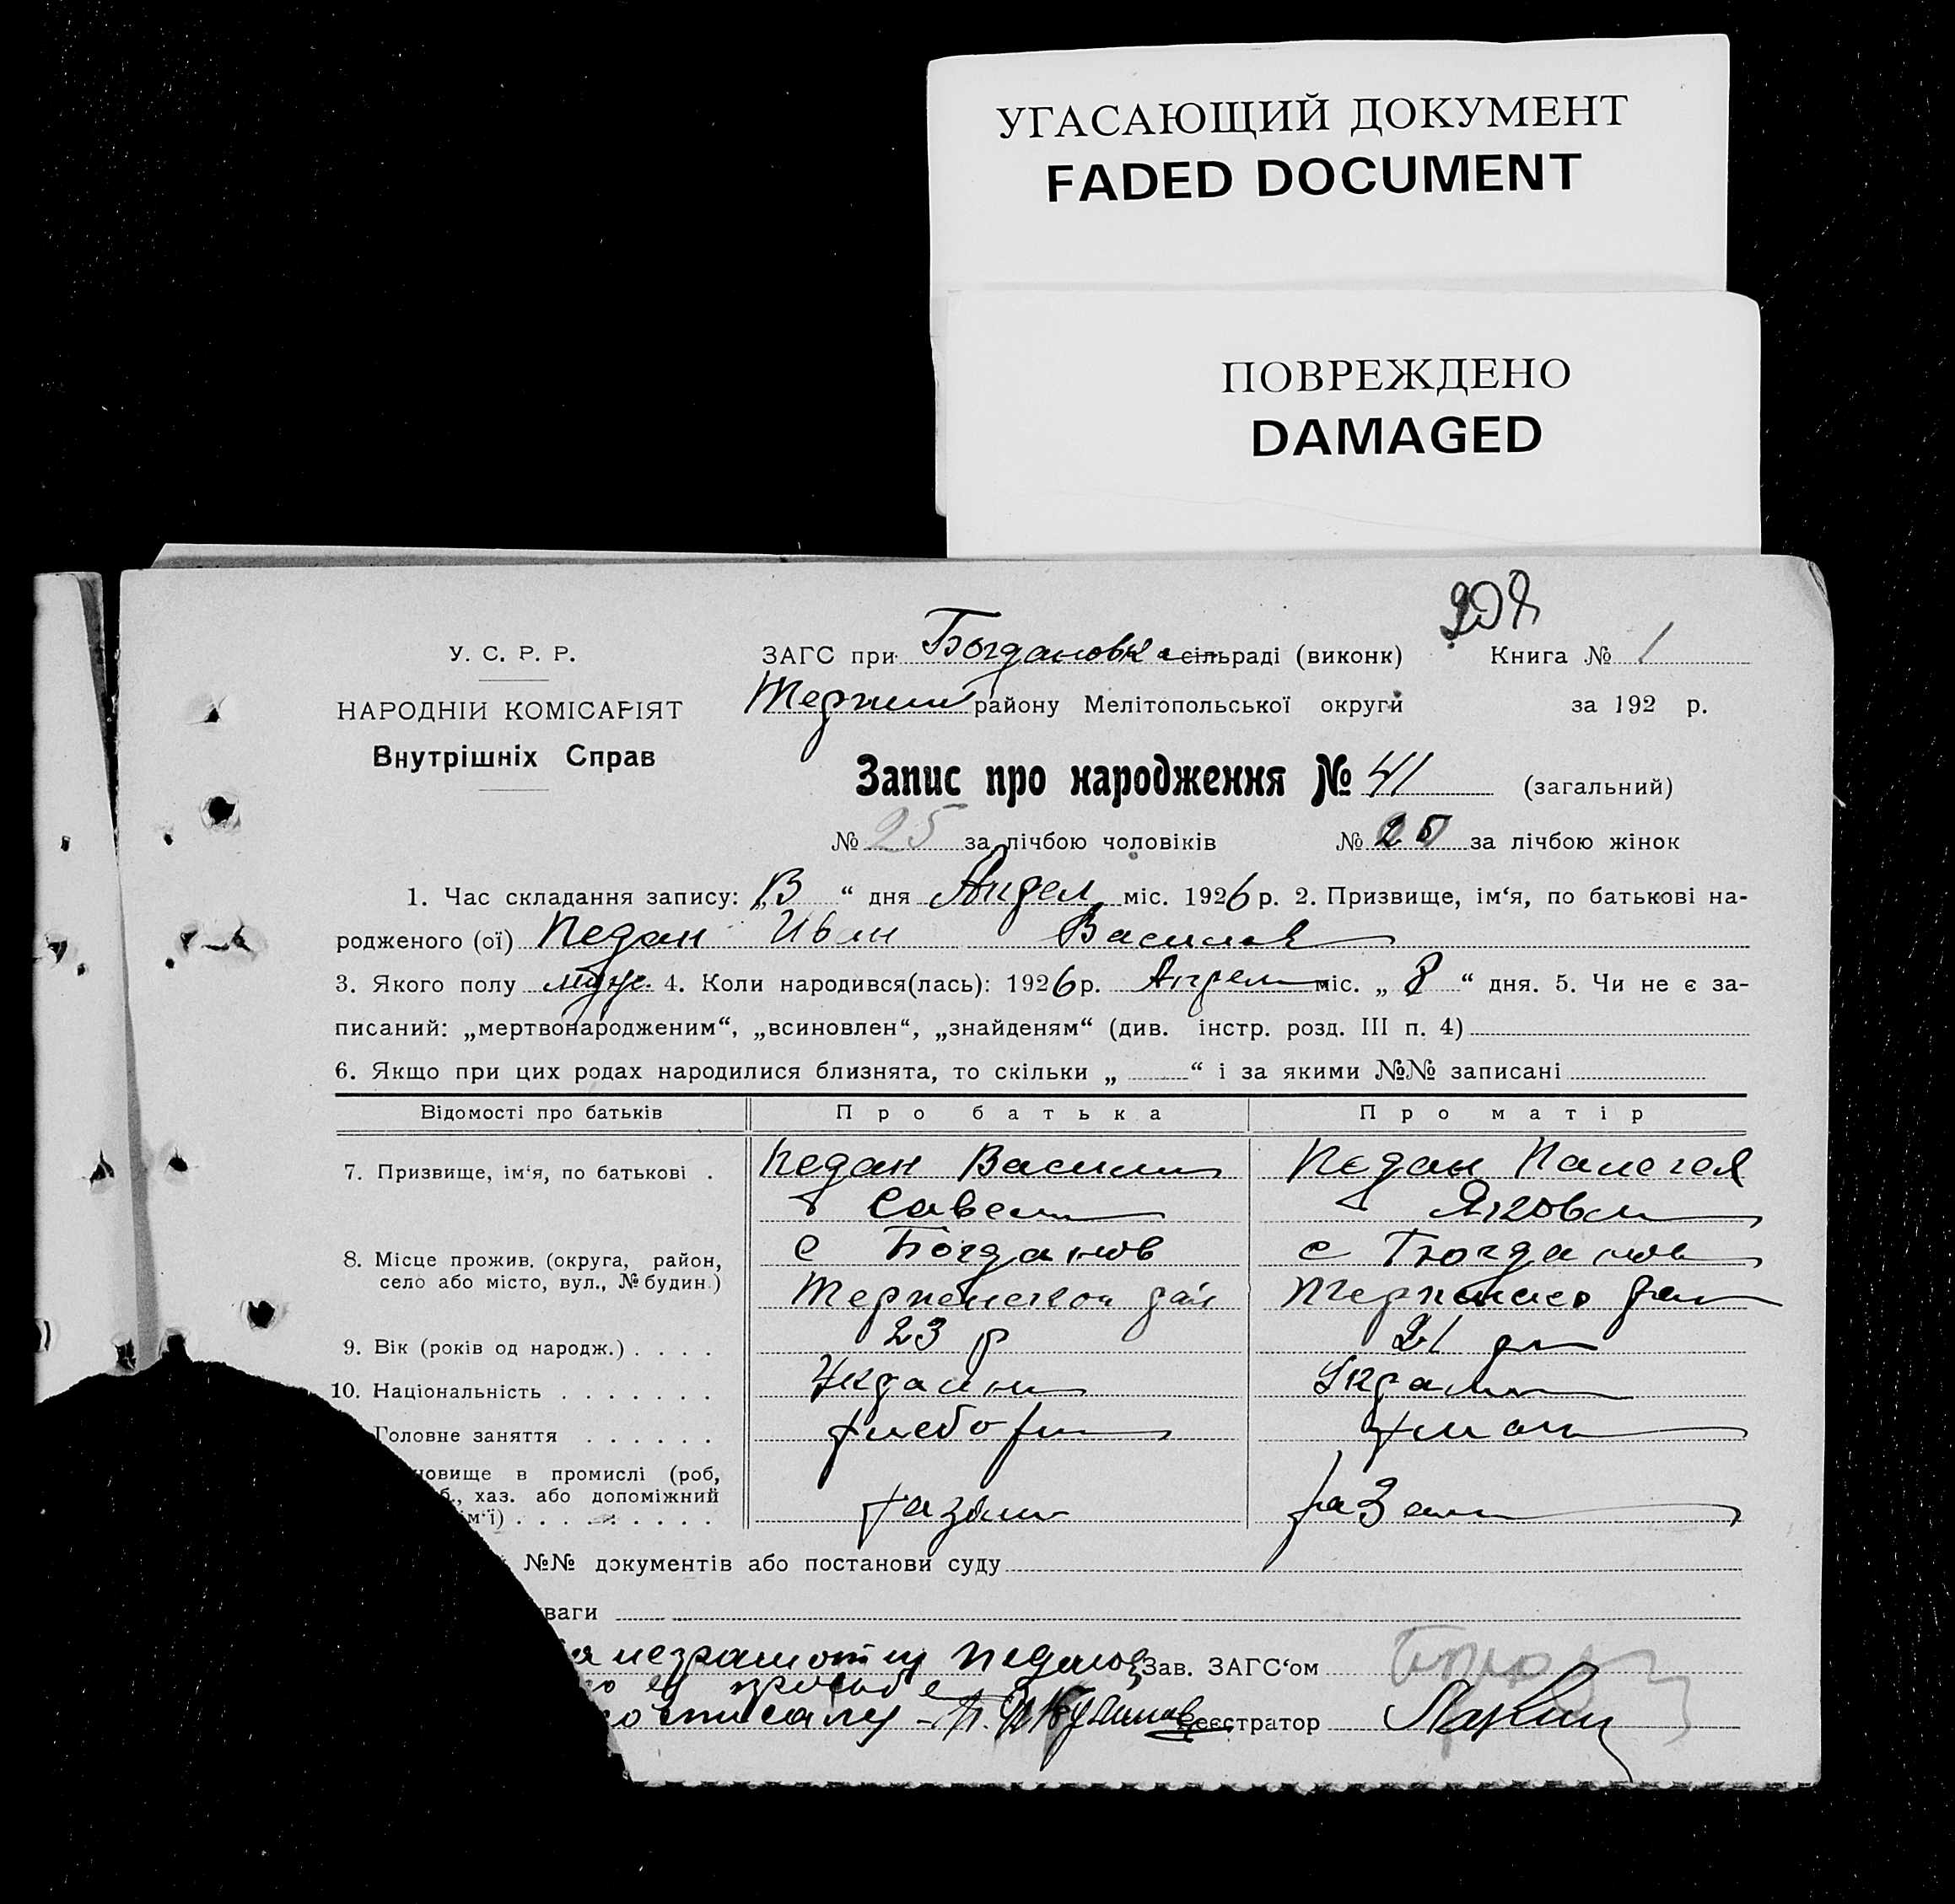 УГАСАЮЩИЙ ДОКУМЕНТ
FADED DOCUMENT
ПОВРЕЖДЕНО
DAMAGED
У. С. Р. Р.
НАРОДНІЙ КОМІСАРІЯТ
Внутрішніх Справ
ЗАГС при Богдановк сільраді (виконк) Книга № 1
району Мелітопольської округи за 192 р.
Запис про народження № 41 (загальний)
№ 25 за лічбою чоловіків № за лічбою жінок
1. Час складання запису: „ “ дня міс. 1926 р. 2. Призвище, ім‘я, по батькові на-
родженого (ої) Педан Иван Василов
3. Якого полу муж. 4. Коли народився(лась): 1926 р. Апрел міс. „ 8 “ дня. 5. Чи не є за-
писаний: „мертвонародженим“, „всиновлен“, „знайденям“ (див. інстр. розд. III п. 4)
6. Якщо при цих родах народилися близнята, то скільки „ “ і за якими №№ записані
Відомості про батьків Про батька Про матір
7. Призвище, ім‘я, по батькові . Педан Васили Педан Палегея
Савел Яковл
8. Місце прожив. (округа, район, с Богданов с Богданов
село або місто, вул., № будин.) Терпенской рай
9. Вік (років од народж.) . . . . 23 р 21
10. Національність . . . . . . . Украин Украин
Головне заняття . . . . . . хлебор
новище в промислі (роб,
б., хаз. або допоміжний
ім‘ї) . . . . . . . . .
№№ документів або постанови суду
ваги
а неграмотну Педанов Зав. ЗАГС‘ом
просьбе
Реєстратор